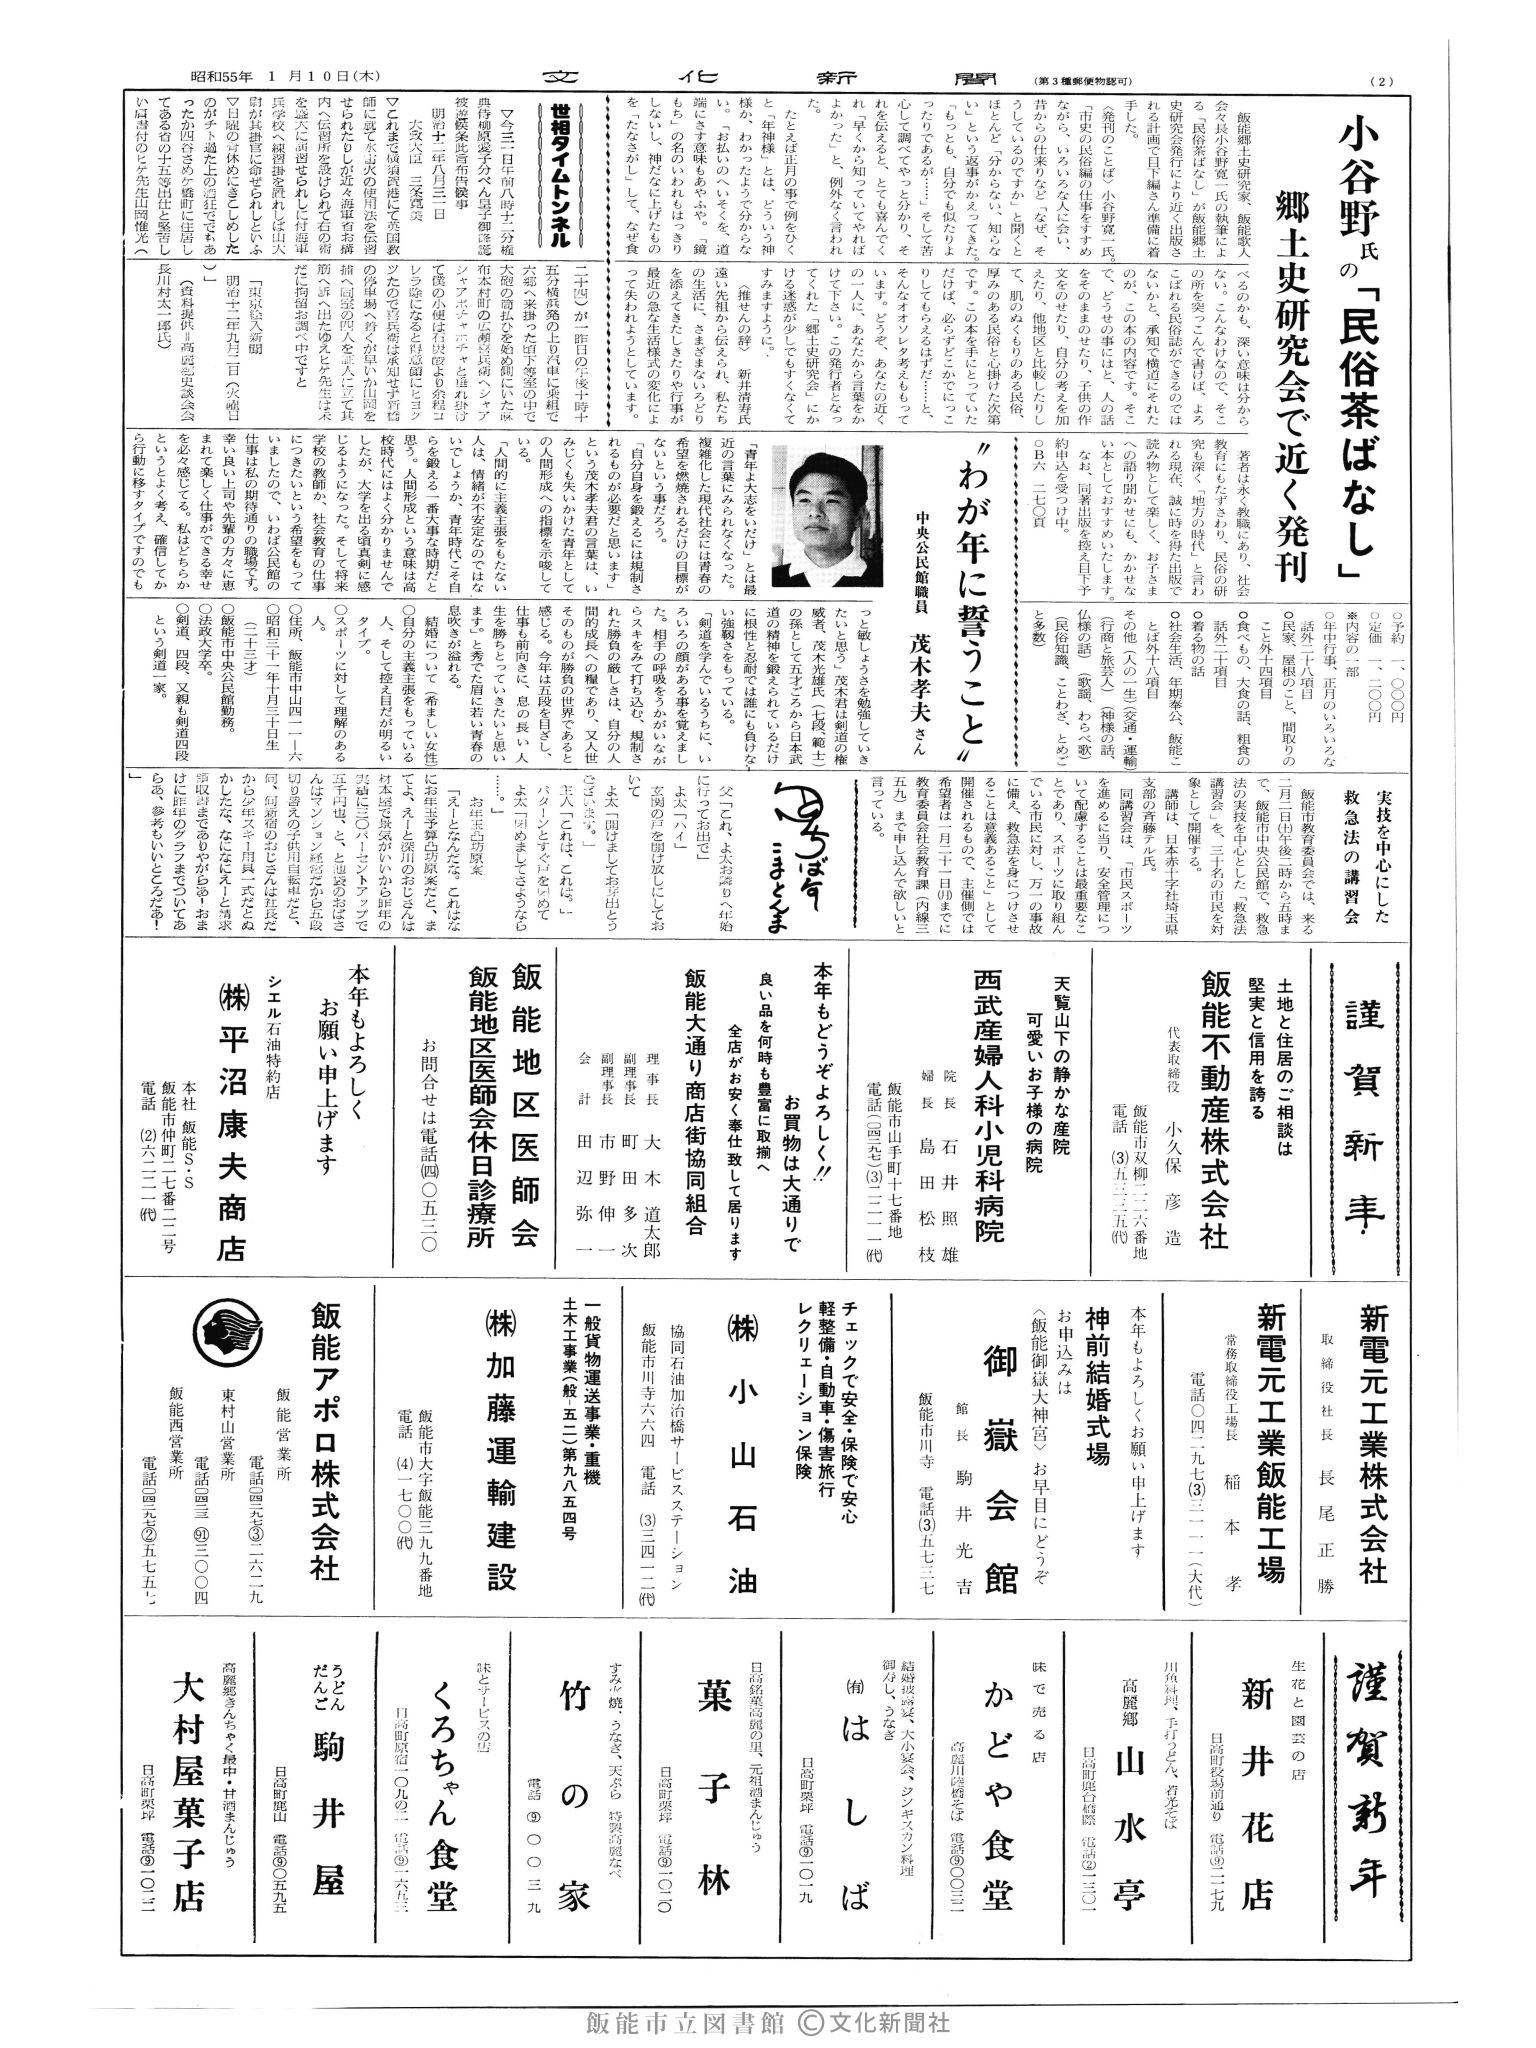 昭和55年 1月10日(木)
文化新聞
(第3種郵便物認可)
(2)
小谷野氏の「民俗茶ばなし」
郷土史研究会で近く発刊
飯能郷土史研究家、飯能歌人
会々長小谷野寛一氏の執筆によ
る「民俗茶ばなし」が飯能郷土
史研究会発行により近く出版さ
れる計画で目下編さん準備に着
手した。
〈発刊のことば〉小谷野寛一氏
「市史の民俗編の仕事をすすめ
ながら、いろいろな人に会い、
昔からの仕来りなど「なぜ、そ
うしているのですか」と聞くと
ほとんど「分からない、知らな
い」という返事がかえってきた。
「もっとも、自分でも似たりよ
ったりであるが……」そして苦
心して調べてやっと分かり、そ
れを伝えると、とても喜んでく
れ「早くから知っていてやれば
よかった」と、例外なく言われ
た。
たとえば正月の事で例をひく
と「年神様」とは、どういう神
様か、わかったようで分からな
い。「お払いのへいそくを、道
端にさす意味もあやふや。「鏡
もち」の名のいわれもはっきり
しないし、神だなに上げたもの
を「たなさがし」して、なぜ食
べるのかも、深い意味は分から
ない。こんなわけなので、そこ
の所を突っこんで書けば、よろ
こばれる民俗誌ができるのでは
ないかと、承知で横道にそれた
のが、この本の内容です。そこ
で、どうせの事にはと、人の話
をそのままのせたり、子供の作
文をのせたり、自分の考えを加
えたり、他地区と比較したりし
て、肌のぬくもりのある民俗、
厚みのある民俗と心掛けた次第
です。この本を手にとっていた
だけば、必らずどこかでにっこ
りしてもらえるはずだ……と、
そんなオオソレタ考えももって
います。どうぞ、あなたの近く
の一人に、あなたから言葉をか
けて下さい。この発行者となっ
てくれた「郷土史研究会」にか
ける迷惑が少しでもすくなくて
すみますように。
〈推せんの辞〉 新井清寿氏
遠い先祖から伝えられ、私たち
の生活に、さまざまないろどり
を添えてきたしきたりや行事が
最近の急な生活様式の変化によ
って失われようとしています。
著者は永く教職にあり、社会
教育にもたずさわり、民俗の研
究も深く「地方の時代」と言わ
れる現在、誠に時を得た出版で
読み物として楽しく、お子さま
への語り聞かせにも、かかせな
い本としておすすめいたします。
なお、同著出版を控え目下予
約申込を受つけ中。
○B六 二七〇頁
○予約 一、〇〇〇円
○定価 一、二〇〇円
※内容の一部
○年中行事、正月のいろいろな
話外二十八項目
○民家、屋根のこと、間取りの
こと外十四項目
○着る物の話
話外二十項目
○食べもの、大食の話、粗食の
○社会生活、年期奉公、飯能こ
とば外十八項目
その他(人の一生)(交通・運輸)
(行商と旅芸人)(神様の話、
仏様の話)(歌謡、わらべ歌)
(民俗知識、ことわざ、とめご
と多数)
世相タイムトンネル
▽今三一日午前八時十二分権
典侍柳原愛子分べん皇子御降誕
被遊候条此旨布告候事
明治十二年八月三一日
太政大臣 三条寛美
▽これまで横須賀港にて英国教
師に就て水雷火の使用法を伝習
せられたりしが近々海軍省お構
内へ伝習所を設けられて右の術
を盛大に演習せられしに付海軍
兵学校へ練習掛を置れしば山大
尉が其掛官に命ぜられしといふ
▽日曜の宵休めにきこしめした
のがチト過た上の酒狂ででもあ
ったか四谷さめケ橋町に住居し
てある省の十五等出仕と堅苦し
い肩書付のヒゲ先生山岡惟光(
二十四)が一昨日の午後十時十
五分横浜発の上り汽車に乗組で
六郷へ来掛った頃下等室の中で
大砲の筒払ひを始め側にいた麻
布本村町の広瀬喜兵衛へシャア
シャアポチャポチャと垂れ掛け
て僕の小便は石炭酸より余程コ
レラ除になると得意顔にヒョグ
ツたので喜兵衛は承知せず新橋
の停車場へ着くが早いか山岡を
捕へ同室の四人を証人に立て其
筋へ訴へ出たゆえヒゲ先生は未
だに拘留お調べ中ですと
「東京絵入新聞
明治十二年九月二日(火曜日
)」
(資料提供=高麗郷史談会会
長川村太一郎氏)
〝わが年に誓うこと〟
中央公民館職員 茂木孝夫さん
「青年よ大志をいだけ」とは最
近の言葉にみられなくなった。
複雑化した現代社会には青春の
希望を燃焼されるだけの目標が
ないという事だろう。
「自分自身を鍛えるには規制さ
れるものが必要だと思います」
という茂木孝夫君の言葉は、い
みじくも失いかけた青年として
の人間形成への指標を示唆して
いる。
「人間的に主義主張をもたない
人は、情緒が不安定なのではな
いでしょうか、青年時代こそ自
らを鍛える一番大事な時期だと
思う。人間形成という意味は高
校時代にはよく分かりませんで
したが、大学を出る頃真剣に感
じるようになった。そして将来
学校の教師か、社会教育の仕事
につきたいという希望をもって
いましたので、いわば公民館の
仕事は私の期待通りの職場です。
幸い良い上司や先輩の方々に恵
まれて楽しく仕事ができる幸せ
を必々感じてる。私はどちらか
というとよく考え、確信してか
ら行動に移すタイプですのでも
っと敏しょうさを勉強していき
たいと思う」茂木君は剣道の権
威者、茂木光雄氏(七段、範士)
の孫として五才ごろから日本武
道の精神を鍛えられているだけ
に根性と忍耐では誰にも負けな
い強靱さをもっている。
「剣道を学んでいるうちに、い
ろいろの顔がある事を覚えまし
た。相手の呼吸をうかがいなが
らスキをみて打ち込む、規制さ
れた勝負の厳しさは、自分の人
間的成長への糧であり、又人世
そのものが勝負の世界であると
感じる。今年は五段を目ざし、
仕事も前向きに、息の長い人
生を勝ちとっていきたいと思い
ます」と秀でた眉に若い青春の
息吹きが溢れる。
結婚について(希ましい女性)
○自分の主義主張をもっている
人、そして控え目だが明るい
タイプ。
○スポーツに対して理解のある
人。
○住所、飯能市中山四一一―六
昭和三十一年十月三十日生
(二十三才)
○飯能市中央公民館勤務。
○法政大学卒。
○剣道、四段、又親も剣道四段
という剣道一家。
実技を中心にした
救急法の講習会
飯能市教育委員会では、来る
二月二日㈯午後二時から五時ま
で、飯能市中央公民館で、救急
法の実技を中心とした「救急法
講習会」を、三十名の市民を対
象として開催する。
講師は、日本赤十字社埼玉県
支部の斉藤テル氏。
同講習会は、「市民スポーツ
を進めるに当り、安全管理につ
いて配慮することは最重要なこ
とであり、スポーツに取り組ん
でいる市民に対し、万一の事故
に備え、救急法を身につけさせ
ることは意義あること」として
開催されるもので、主催側では
希望者は一月二十一日㈪までに
教育委員会社会教育課(内線三
五九)まで申し込んで欲しいと
言っている。
こまとんま
父「これ、よ太お隣りへ年始
に行ってお出で」
よ太「ハイ」
玄関の戸を開け放しにしてお
いて
よ太「開けましてお芽出とう
ございます。」
主人「これは、これは。」
パターンとすぐ戸を閉めて
よ太「閉めましてさようなら
……。」
お年玉凸功原案
「えーとなんだな。これはな
にお年玉予算凸功原案だと、ま
てよ、えーと深川のおじさんは
材木屋で景気がいいから昨年の
実績に三〇パーセントアップで
五千円也、と、と池袋のおばさ
んはマンション経営だから五段
切り替えの子供用自転車だと、
何、何新宿のおじさんは社長だ
から少年スキー用具一式だとぬ
かしたな、なになにえーと請求
領収書まであり やがらあ!おま
けに昨年のグラフまでついてあ
らあ、参考もいいところだあ!
」
謹賀新年
土地と住居のご相談は
堅実と信用を誇る
飯能不動産株式会社
代表取締役 小久保彦造
飯能市双柳二二六番地
電話 ⑶五三三五㈹
天覧山下の静かな産院
可愛いお子様の病院
西武産婦人科小児科病院
院長 石井照雄
婦長 島田松枝
飯能市山手町十七番地
電話(〇四二九七)⑶二二一一㈹
本年もどうぞよろしく!!
お買物は大通りで
良い品を何時も豊富に取揃へ
全店がお安く奉仕致して居ります
飯能大通り商店街協同組合
理事長 大木道太郎
副理事長 町田多次
副理事長 市野伸一
会計 田辺弥一
飯能地区医師会
飯能地区医師会休日診療所
お問合せは電話㈣〇五三〇
本年もよろしく
お願い申上げます
シエル石油特約店
㈱平沼康夫商店
本社 飯能S・S
飯能市仲町二七番二二号
電話 ⑵六二二一㈹
新電元工業株式会社
取締役社長 長尾正勝
新電元工業飯能工場
常務取締役工場長 稲本孝
電話〇四二九七⑶三一一一(大代)
本年もよろしくお願い申上げます
神前結婚式場
お申込みは
〈飯能御嶽大神宮〉お早目にどうぞ
御嶽会館
館長 駒井光吉
飯能市川寺 電話⑶五七三七
チェックで安全・保険で安心
軽整備・自動車・傷害旅行
レクリェーション保険
㈱小山石油
協同石油加治橋サービスステーション
飯能市川寺六六四 電話 ⑶三四一二㈹
一般貨物運送事業・重機
土木工事業(般-五二)第九八五四号
㈱加藤運輸建設
飯能市大字飯能三九九番地
電話 ⑷一七〇〇㈹
飯能アポロ株式会社
飯能営業所
電話〇四二九七③二六二九
東村山営業所
電話〇四二三�91三〇〇四
飯能西営業所
電話〇四二九七②五七五七
謹賀新年
生花と園芸の店
新井花店
日高町役場前通り 電話⑨二一七九
川魚料理、手打うどん、若光そば
高麗郷 山水亭
日高町鹿台橋際 電話②一三〇一
味で売る店
かどや食堂
高麗川陸橋そば 電話⑨〇〇三二
結婚披露宴、大小宴会、ジンギスカン料理
御寿し、うなぎ
㈲はしば
日高町栗坪 電話⑨一〇一九
日高銘菓高麗の里、元祖酒まんじゅう
菓子林
日高町栗坪 電話⑨一〇二〇
すみ火焼、うなぎ、天ぷら 特製高麗なべ
竹の家
電話⑨〇〇三九
味とサービスの店
くろちゃん食堂
日高町原宿一〇九の二 電話⑨一六五三
うどん
だんご
駒井屋
日高町鹿山 電話⑨〇五九五
高麗郷きんちゃく最中・甘酒まんじゅう
大村屋菓子店
日高町栗坪 電話⑨一〇二二
飯能市立図書館 ©文化新聞社